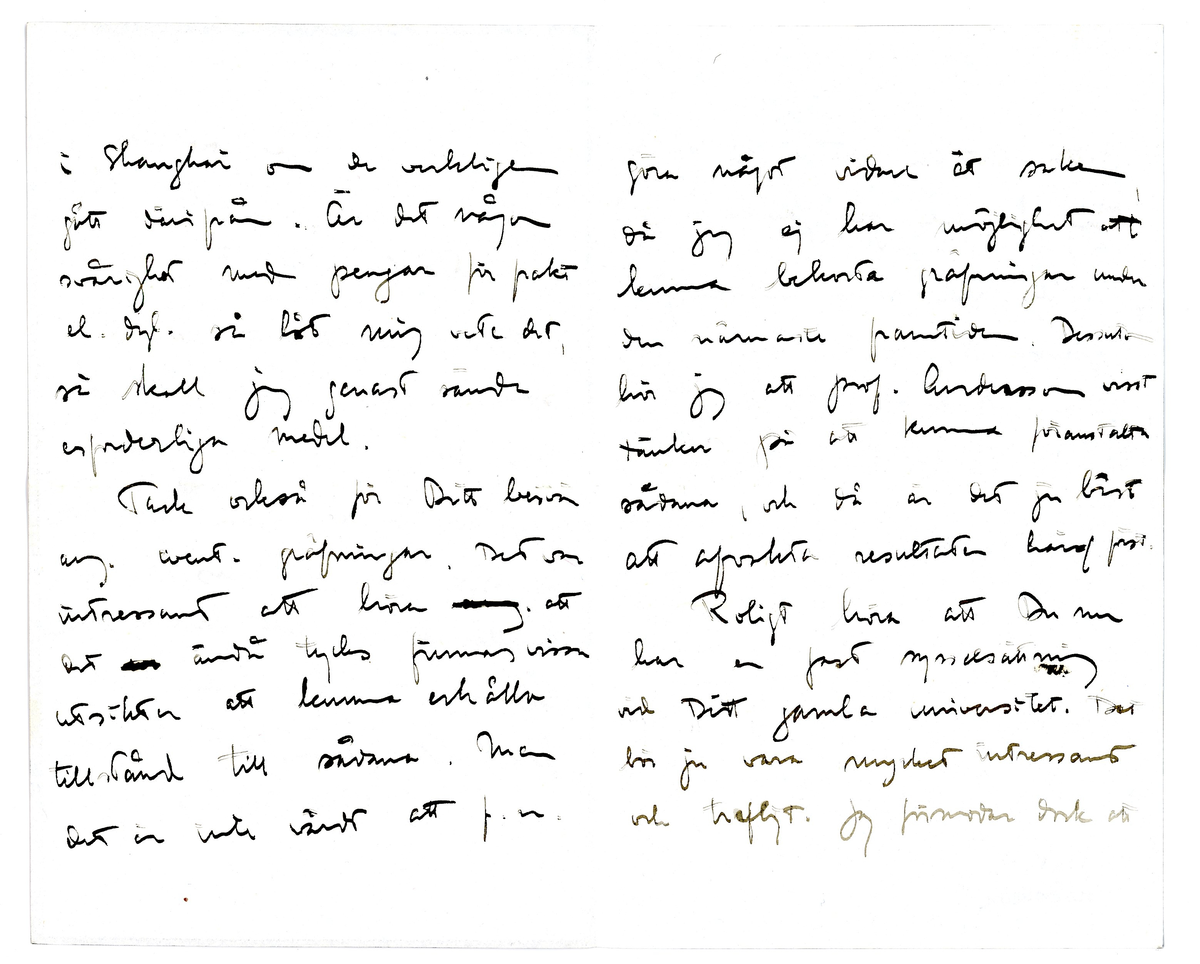 i Shanghai om de verkligen
gått därifrån. Är det någon
svårighet med pengar för frakt
el. dyl. så låt mig veta det,
så skall jag genast sända
erforderliga medel.
Tack också för Ditt besvär
ang. event. gräfningar. Det var
intressant att höra att
det ändå tycks finnas vissa
utsikter att kunna erhålla
tillstånd till sådana. Men
det är inte värdt att f. n.
göra något vidare åt saken,
då jag ej har möjlighet att
kunna bekosta gräfningar under
den närmaste framtiden. Dessutom
hör jag att prof. Andersson visst
tänker på att kunna föranstalta
sådana, och då är det ju bäst
att afvakta resultaten häraf först.
Roligt höra att Du nu
har en fast sysselsättning
vid Ditt gamla universitet. Det
bör ju vara mycket intressant
och trefligt. Jag förmodar dock att